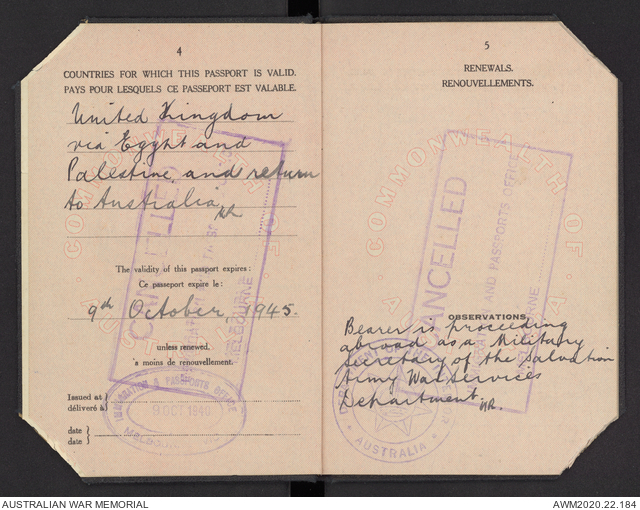 4
COUNTRIES FOR WHICH THIS PASSPORT IS VALID.
PAYS POUR LESQUELS CE PASSEPORT EST VALABLE.
United Kingdom
via Egypt and
Palestine and return
to Australia
CANCELLED
MELBOURNE
The validity of this passport expires:
Ce passeport expire le:
9th October, 1945.
unless renewed.
'a moins de renouvellement.
Issued at
délivré à
IMMIGRATION & PASSPORTS OFFICE
9 OCT 1940
date
date
5
RENEWALS.
RENOUVELLEMENTS.
COMMONWEALTH OF
CANCELLED
AND PASSPORTS OFFICE
OBSERVATIONS.
Bearer is proceeding
abroad as a Military
Secretary of the Salvation
Army War Services
Department.
AUSTRALIA
AUSTRALIAN WAR MEMORIAL
AWM2020.22.184